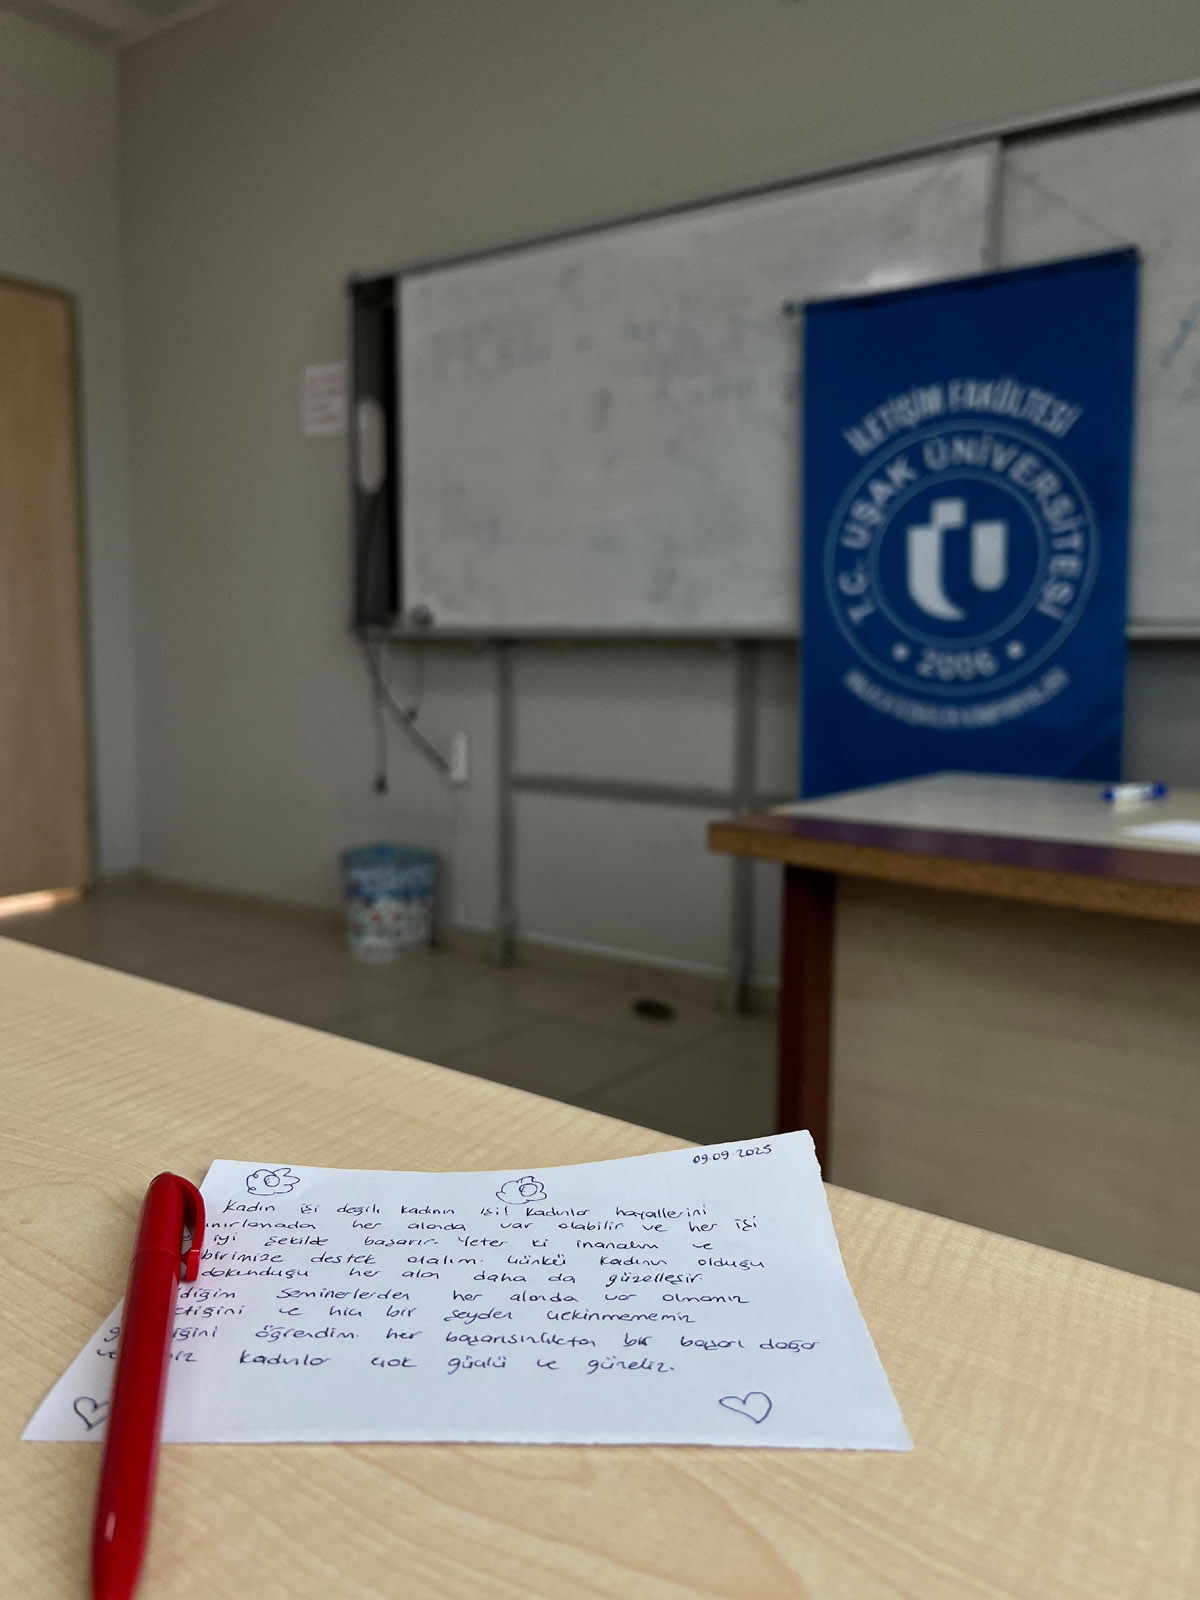 İLETİŞİM FAKÜLTESİ
T.C. UŞAK ÜNİVERSİTESİ
2006
09.09.2025
Kadın işi değil kadının işi! Kadınlar hayallerini
her alanda var olabilir ve her işi
iyi şekilde başarır. Yeter ki inanalım ve
birimize destek olalım. Çünkü kadının olduğu
dokunduğu her alan daha da güzelleşir.
seminerlerden her alanda var olmamız
ve hiç bir şeyden çekinmememiz
öğrendim. her başarısızlıktan bir başarı doğar
kadınlar çok güçlü ve güzeliz.